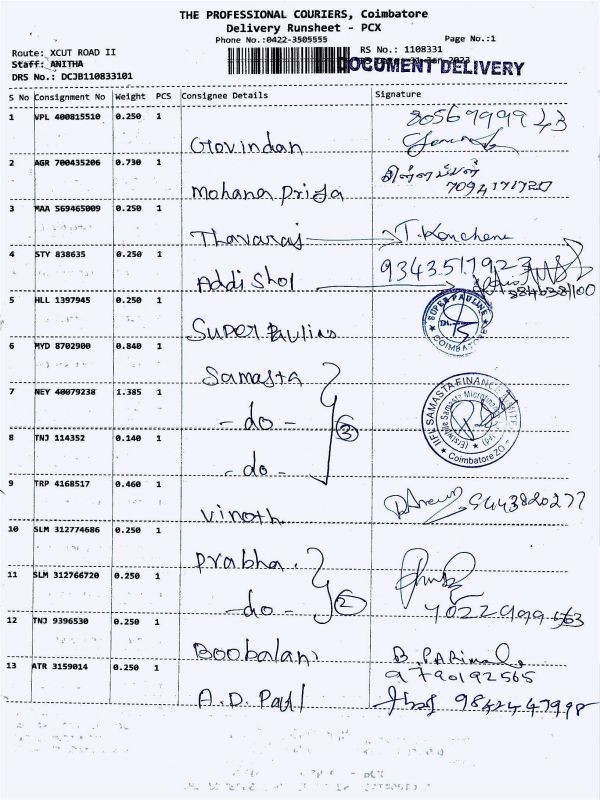 THE PROFESSIONAL COURIERS, Coimbatore
Delivery Runsheet - PCX
Phone No.:0422-3505555 Page No.:1
Route: XCUT ROAD II RS No.: 1108331
Staff: ANITHA DOCUMENT DELIVERY
DRS No.: DCJB110833101
S No Consignment No Weight PCS Consignee Details Signature
1 VPL 400815510 0.250 1
Govindan
2 AGR 700435206 0.730 1
Mohana Priya 7094171720
3 MAA 569465009 0.250 1
Thavaraj T. Kanchana
4 STY 838635 0.250 1 9343517923
Addi Shol
5 HLL 1397945 0.250 1 SUPER PAULINE
Super Paulins COIMBATORE
6 MYD 8702900 0.840 1
Samasta
7 NEY 40079238 1.385 1 IIFL SAMASTA FINANCE LIMITED
-do- 3 (Erstwhile Samasta Microfinance
8 TNJ 114352 0.140 1 Coimbatore ZO
-do-
9 TRP 4168517 0.460 1
Vinoth 9443820277
10 SLM 312774686 0.250 1
Prabha.
11 SLM 312766720 0.250 1
-do- 2
12 TNJ 9396530 0.250 1
Boobalan B. PARimala
13 ATR 3159014 0.250 1 9790192565
A.D. Paul 9842447998